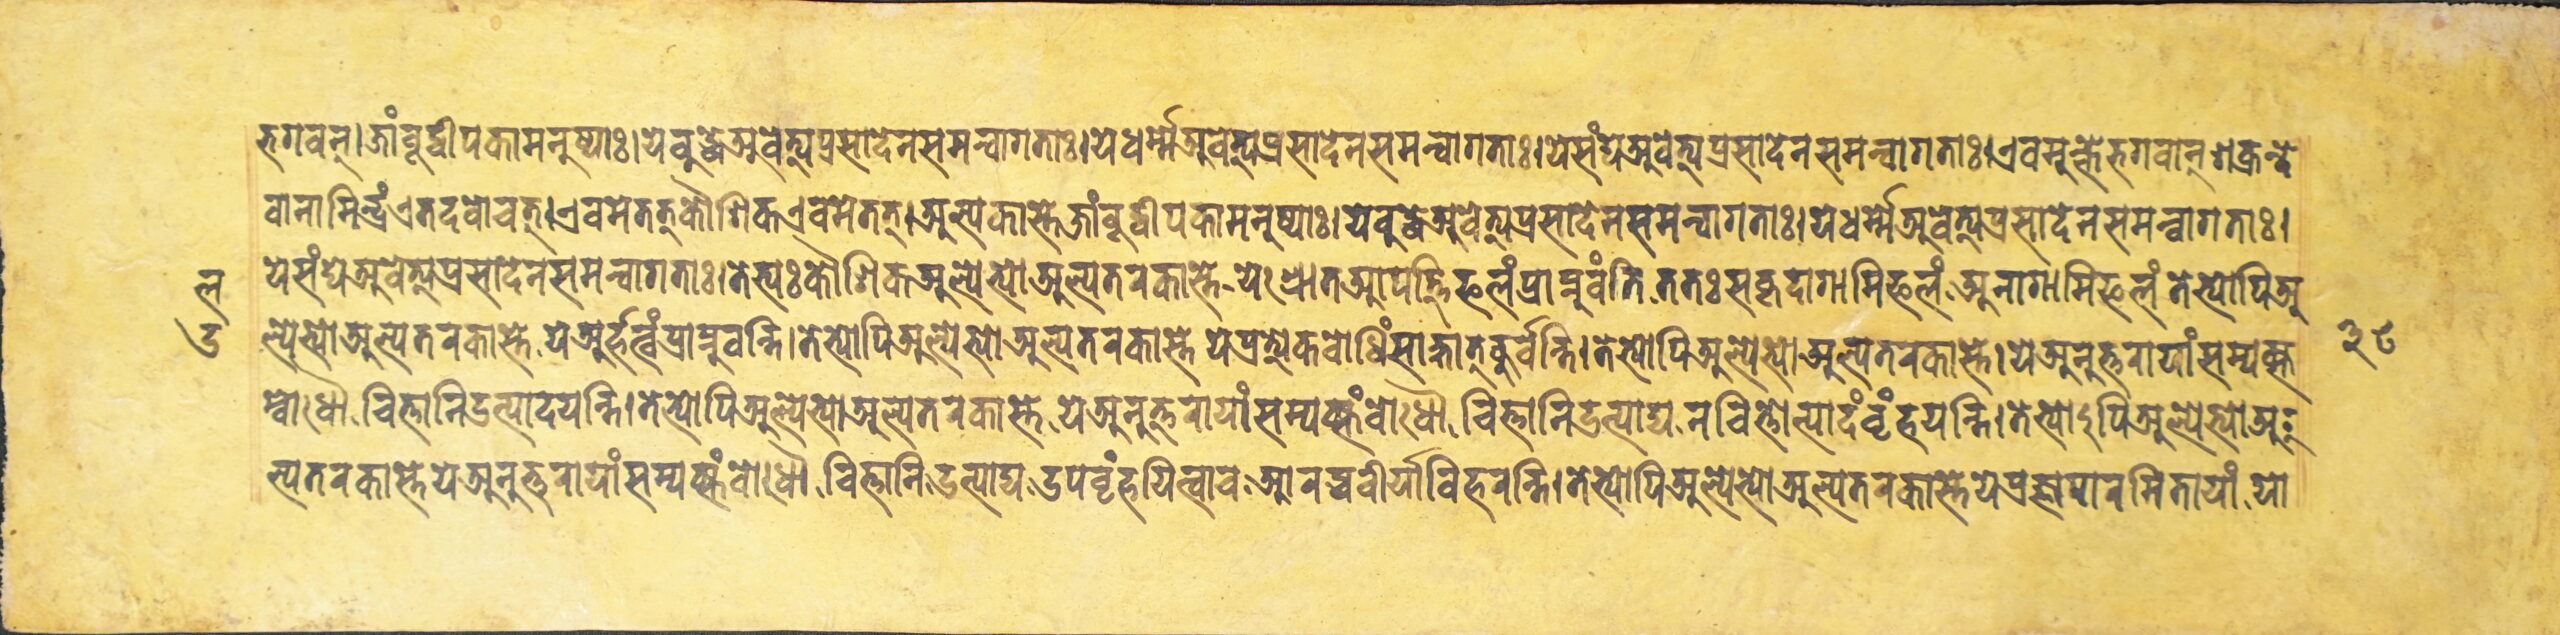 भगवन्।जांबूद्वीपकामनुष्याः।येबुद्धेअवेत्यप्रसादेनसमन्वागताः।येधर्म्मेअवेत्यप्रसादेनसमन्वागताः।येसंघेअवेत्यप्रसादेनसमन्वागताः।एवमुक्तेभगवान्शक्रन्दे
वानामिन्द्रंएतदवोचत्।एवमेतत्कौशिकएवमेतत्।अल्पकास्तेजांबूद्वीपकामनुष्याः।येबुद्धेअवेत्यप्रसादेनसमन्वागताः।येधर्म्मेअवेत्यप्रसादेनसमन्वागताः।
येसंघेअवेत्यप्रसादेनसमन्वागताः।तेभ्यःकौशिकअल्पेभ्योअल्पतरकास्ते.येःश्रोतआपत्तिफलंप्राप्नुवंति.ततःसकृदागामिफलं.अनागामिफलं.तेभ्योपिअ
ल्पेभ्योअल्पतरकास्ते.येअर्हत्वंप्राप्नुवन्ति।तेभ्योपिअल्पेभ्योअल्पतरकास्ते येप्रत्येकबोधिंसाक्षात्कुर्वन्ति।तेभ्योपिअल्पेभ्योअल्पतरकास्ते।येअनुत्तरायांसम्यक्स
म्बोधौ.चित्तानिउत्पादयन्ति।तेभ्योपिअल्पेभ्योअल्पतरकास्ते.येअनुत्तरायांसम्यक्संबोधौ.चित्तानिउत्पाद्य.नचित्तोत्पादंबृंहयन्ति।तेभ्योऽपिअल्पेभ्योअ
ल्पतरकास्तेयेअनुत्तरायांसम्यक्संबोधौ.चित्तानि.उत्पाद्य.उपबृंहयित्वाच.आरब्धवीर्याविहरन्ति।तेभ्योपिअल्पेभ्योअल्पतरकास्तेयेप्रज्ञापारमितायां.यो